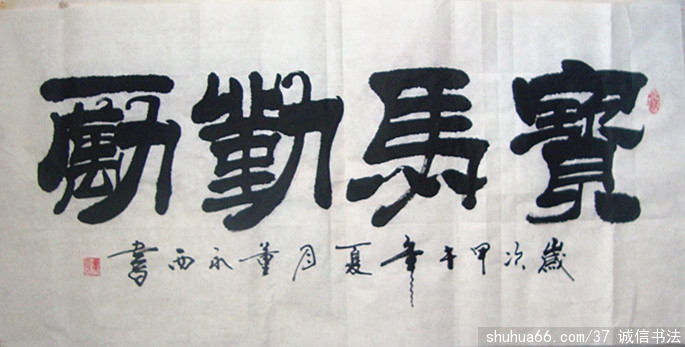 寶馬勤勵
歲次甲午年夏月董永西書
shuhua66.com/37 诚信书法